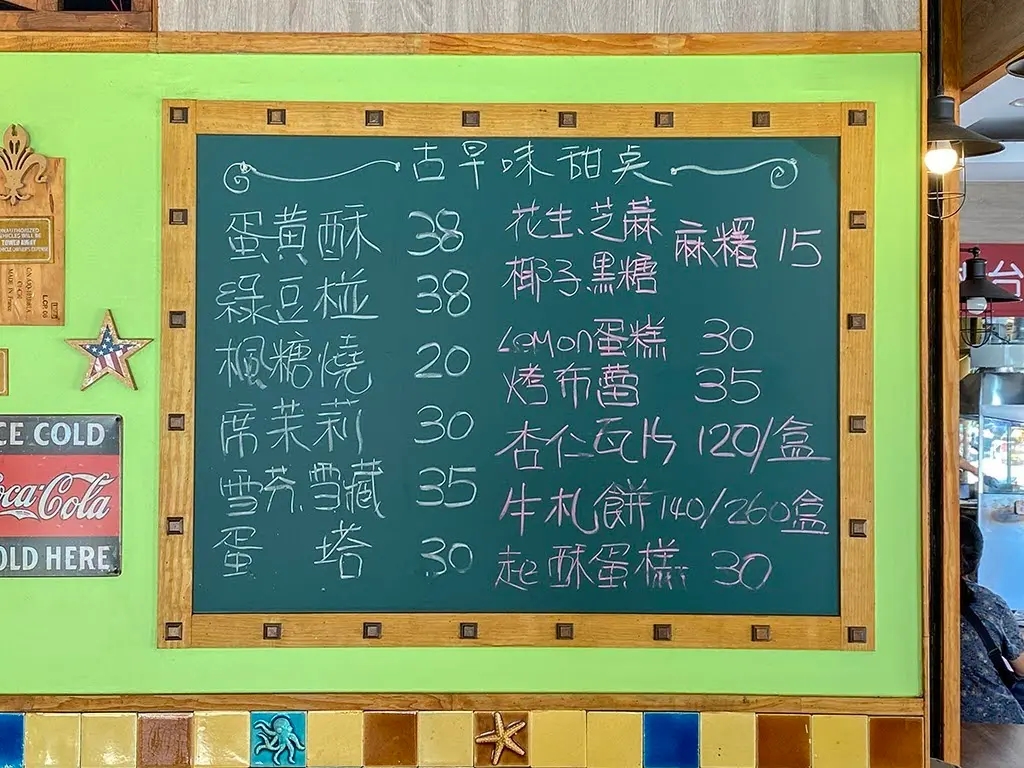 古早味甜点
蛋黄酥 38
綠豆椪 38
楓糖燒 20
席茉莉 30
雪芬.雪藏 35
蛋 塔 30
花生、芝蔴
椰子.黑糖
麻糬 15
Lemon蛋糕 30
烤布蕾 35
杏仁瓦片 120/盒
牛札餅 140/260盒
起酥蛋糕 30
UNAUTHORIZED
VEHICLES WILL BE
TOWED AWAY
CE COLD
oca-Cola
OLD HERE
台